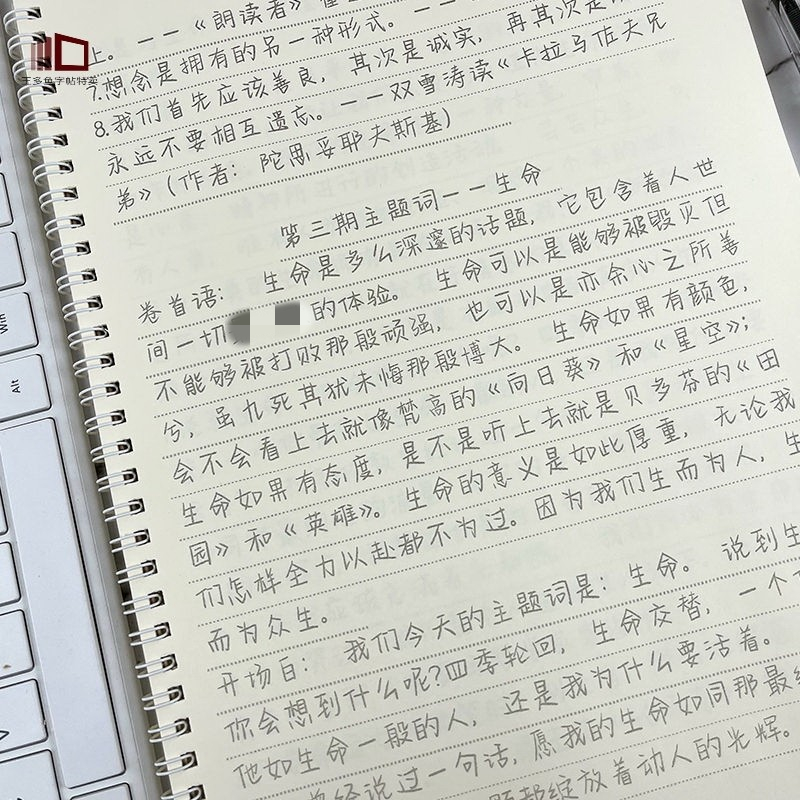 上。——《朗读者》
7.想念是拥有的另一种形式。——
8.我们首先应该善良，其次是诚实，再其次是
永远不要相互遗忘。——双雪涛读《卡拉马佐夫兄
弟》(作者：陀思妥耶夫斯基)
第三期主题词——生命
卷首语： 生命是多么深邃的话题，它包含着人世
间一切 的体验。生命可以是能够被毁灭但
不能够被打败那般顽强，也可以是亦余心之所善
兮，虽九死其犹未悔那般博大。生命如果有颜色，
会不会看上去就像梵高的《向日葵》和《星空》；
生命如果有态度，是不是听上去就是贝多芬的《田
园》和《英雄》。生命的意义是如此厚重，无论我
们怎样全力以赴都不为过。因为我们生而为人，生
而为众生。
开场白： 我们今天的主题词是：生命。说到生
你会想到什么呢?四季轮回，生命交替，一个
他如生命一般的人，还是我为什么要活着。
曾经说过一句话，愿我的生命如同那最
都绽放着动人的光辉。
王多鱼字帖特卖
Win
Alt